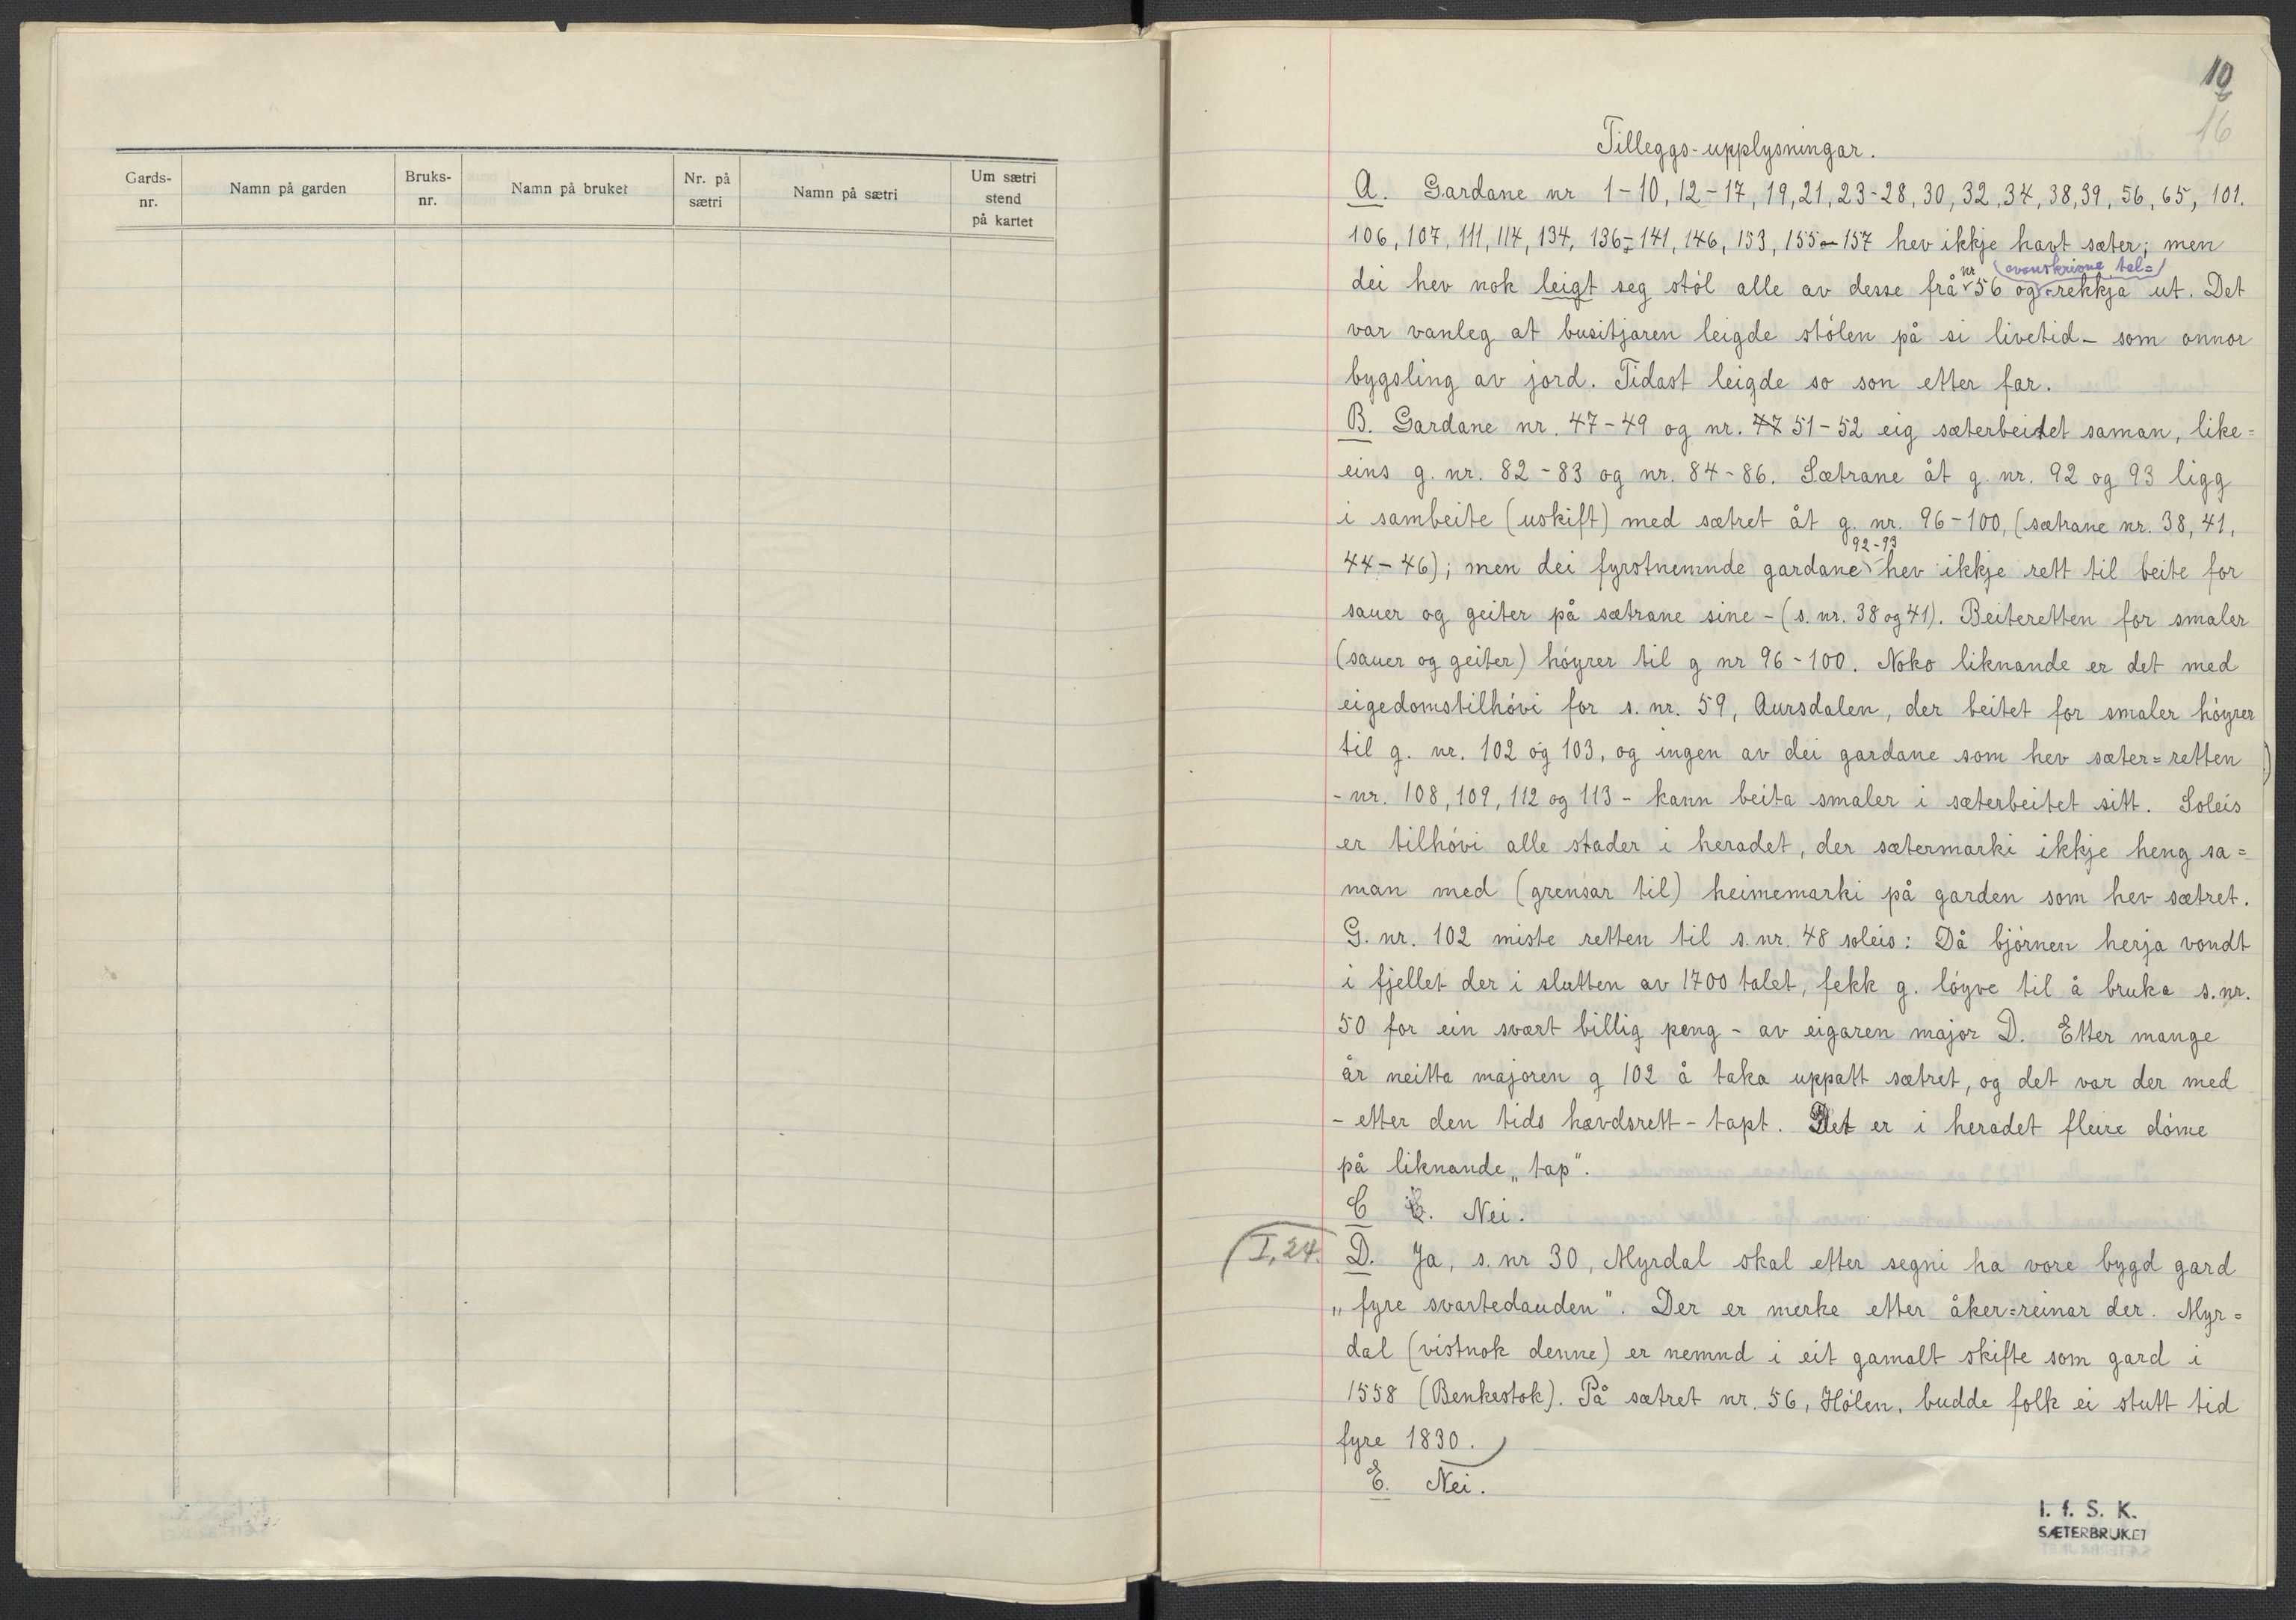 Gards-
nr.
Namn på garden
Bruks-
nr.
Namn på bruket
Nr. på
sætri
Namn på sætri
Um sætri
stend
på kartet
10
16
Tilleggs-upplysningar.
A. Gardane nr 1-10, 12-17, 19, 21, 23-28, 30, 32, 34, 38, 39, 56, 65, 101.
106, 107, 111, 114, 134, 136-141, 146, 153, 155-157 hev ikkje havt sæter; men
dei hev nok leigt seg stól alle av desse frå nr 56 og ovanskrivne tal=rekkja ut. Det
var vanleg at busitjaren leigde stólen på si livetid - som onnor
bygsling av jord. Tidast leigde so son etter far.
B. Gardane nr. 47-49 og nr. 47 51-52 eig sæterbeitet saman, like=
eins g. nr. 82-83 og nr. 84-86. Sætrane åt g. nr. 92 og 93 ligg
i sambeite (uskift) med sætret åt g. nr. 96-100, (sætrane nr. 38, 41,
44-46); men dei fyrstnemnde gardane 92-93 hev ikkje rett til beite for
sauer og geiter på sætrane sine - (s. nr. 38 og 41). Beiteretten for smaler
(sauer og geiter) höyrer til g nr 96-100. Noko liknande er det med
eigedomstilhövi for s. nr. 59, Aursdalen, der beitet for smaler höyrer
til g. nr. 102 og 103, og ingen av dei gardane som hev sæter=retten
- nr. 108, 109, 112 og 113 - kann beita smaler i sæterbeitet sitt. Soleis
er tilhövi alle stader i heradet, der sætermarki ikkje heng sa=
man med (grensar til) heimemarki på garden som hev sætret.
G. nr. 102 miste retten til s. nr. 48 soleis: Då björnen herja vondt
i fjellet der i slutten av 1700 talet, fekk g. löyve til å bruka s. nr.
50 for ein svært billig peng - av eigaren major D. Etter mange
år neitta majoren g 102 å taka uppatt sætret, og det var der med
- etter den tids hævdsrett - tapt. Det er i heradet fleire döme
på liknande „tap".
C Nei.
(I, 24.
D. Ja, s. nr 30, Myrdal skal etter segni ha vore bygd gard
„fyre svartedauden". Der er merke etter åker=reinar der. Myr=
dal (vistnok denne) er nemnd i eit gamalt skifte som gard i
1558 (Benkestok). På sætret nr. 56, Hölen, budde folk ei stutt tid
fyre 1830.)
E. Nei.
I. f. S. K.
SÆTERBRUKET